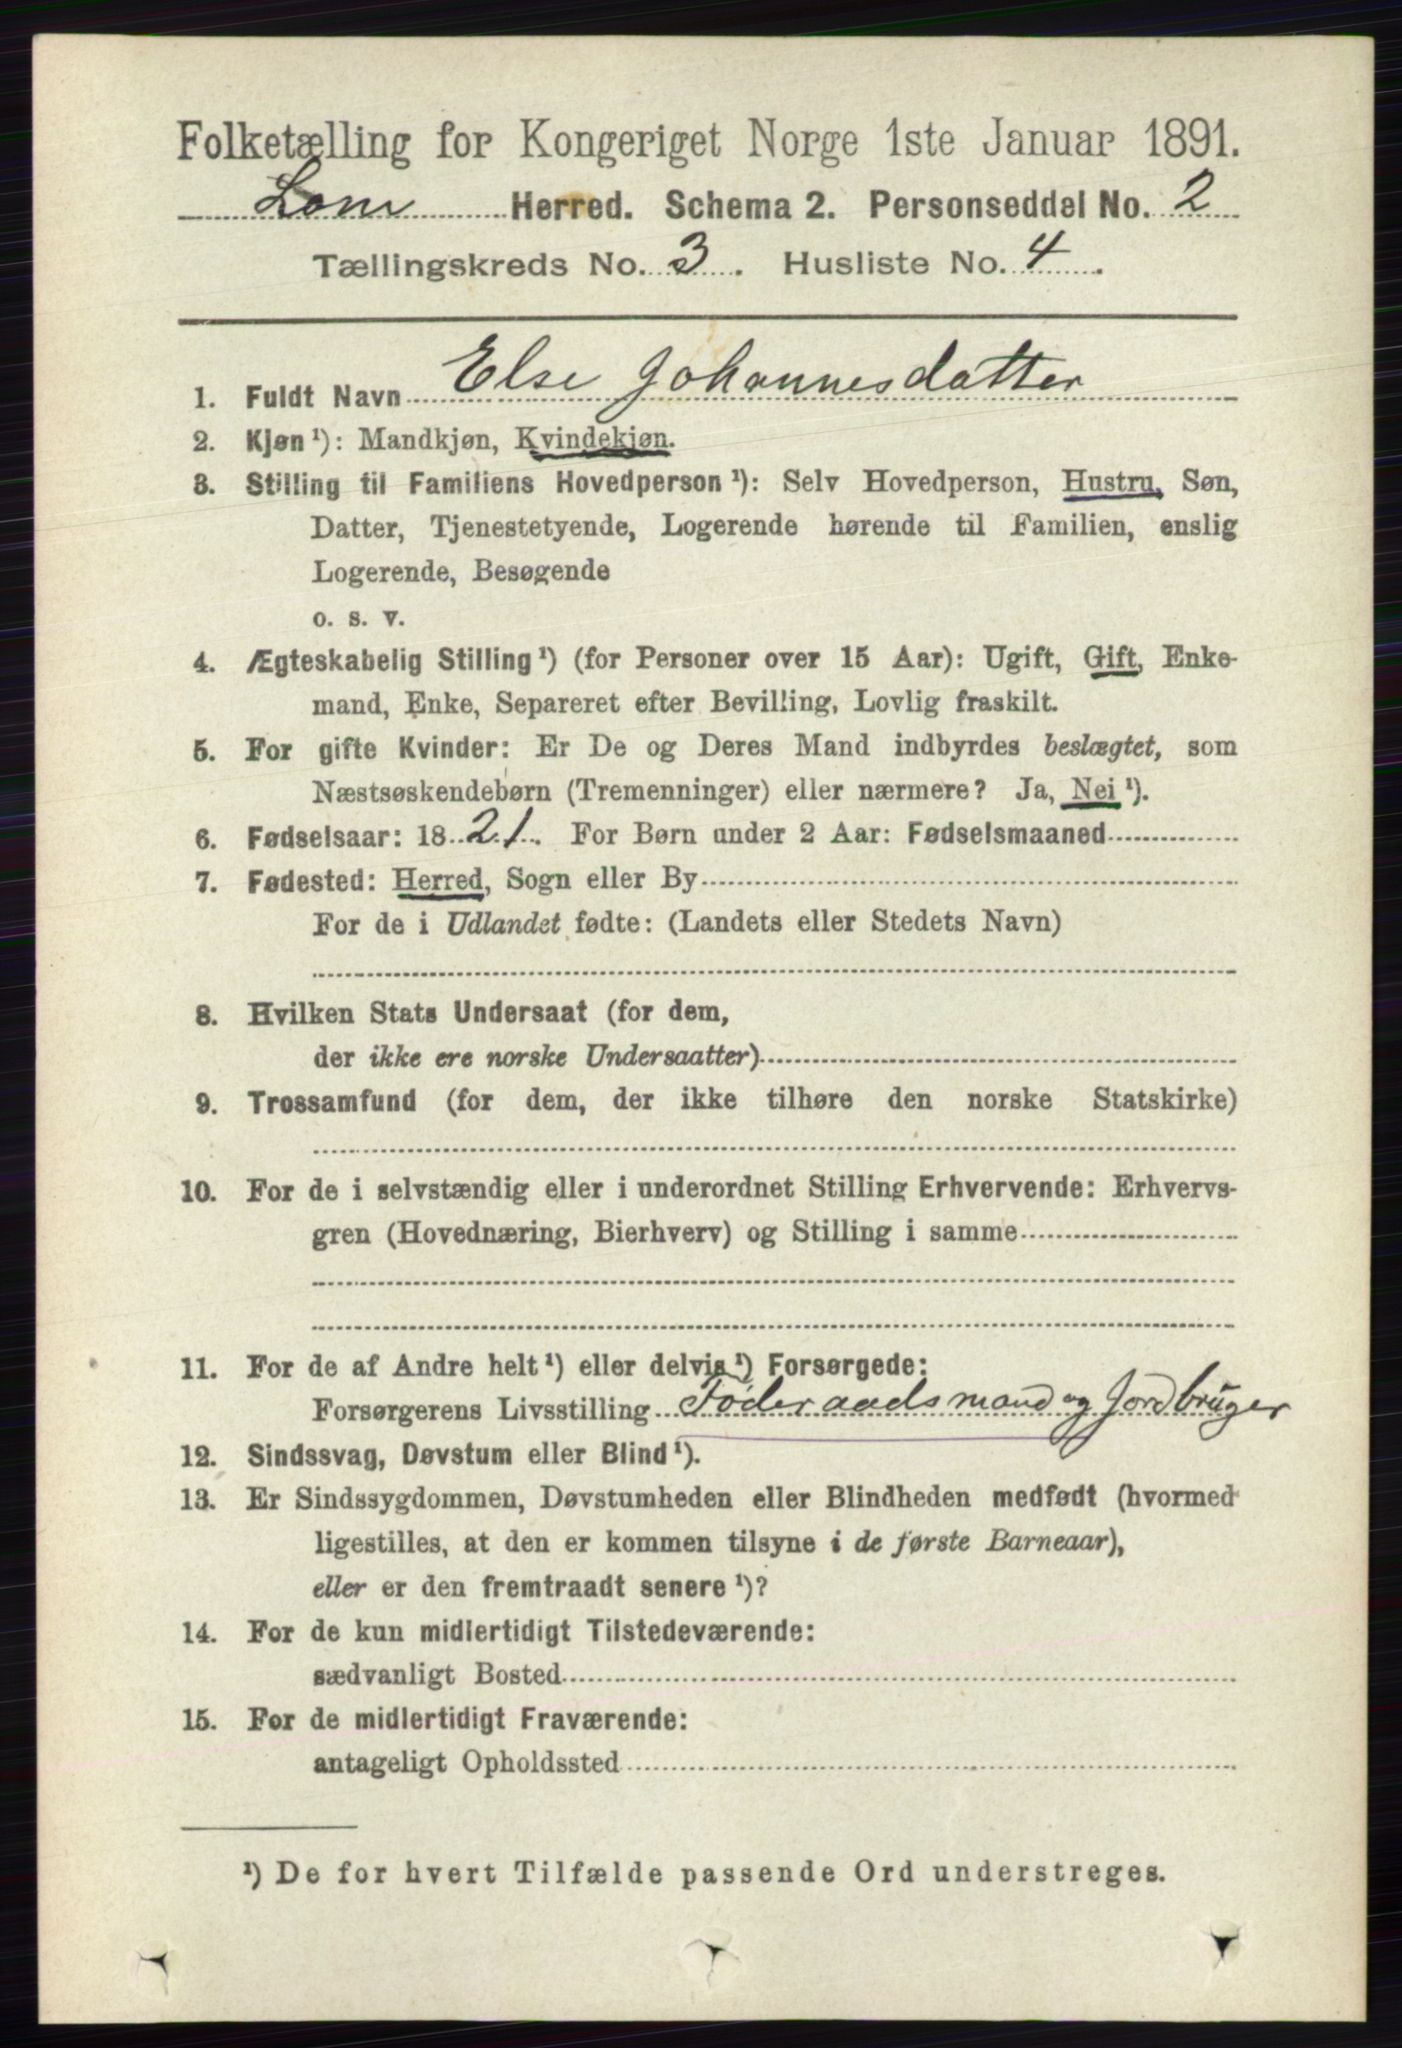 Folketælling for Kongeriget Norge 1ste Januar 1891.
Lom Herred. Schema 2. Personseddel No. 2
Tællingskreds No. 3. Husliste No. 4.
1. Fuldt Navn Else Johannesdatter
2. Kjøn¹): Mandkjøn, Kvindekjøn.
3. Stilling til Familiens Hovedperson¹): Selv Hovedperson, Hustru, Søn,
Datter, Tjenestetyende, Logerende hørende til Familien, enslig
Logerende, Besøgende
o. s. v.
4. Ægteskabelig Stilling¹) (for Personer over 15 Aar): Ugift, Gift, Enke-
mand, Enke, Separeret efter Bevilling, Lovlig fraskilt.
5. For gifte Kvinder: Er De og Deres Mand indbyrdes beslægtet, som
Næstsøskendebørn (Tremenninger) eller nærmere? Ja, Nei¹).
6. Fødselsaar: 1821. For Børn under 2 Aar: Fødselsmaaned
7. Fødested: Herred, Sogn eller By
For de i Udlandet fødte: (Landets eller Stedets Navn)
8. Hvilken Stats Undersaat (for dem,
der ikke ere norske Undersaatter)
9. Trossamfund (for dem, der ikke tilhøre den norske Statskirke)
10. For de i selvstændig eller i underordnet Stilling Erhvervende: Erhvervs-
gren (Hovednæring, Bierhverv) og Stilling i samme
11. For de af Andre helt¹) eller delvis¹) Forsørgede:
Forsørgerens Livsstilling Føderaadsmand og Jordbruger
12. Sindssvag, Døvstum eller Blind¹).
13. Er Sindssygdommen, Døvstumheden eller Blindheden medfødt (hvormed
ligestilles, at den er kommen tilsyne i de første Barneaar),
eller er den fremtraadt senere¹)?
14. For de kun midlertidigt Tilstedeværende:
sædvanligt Bosted
15. For de midlertidigt Fraværende:
antageligt Opholdssted
¹) De for hvert Tilfælde passende Ord understreges.